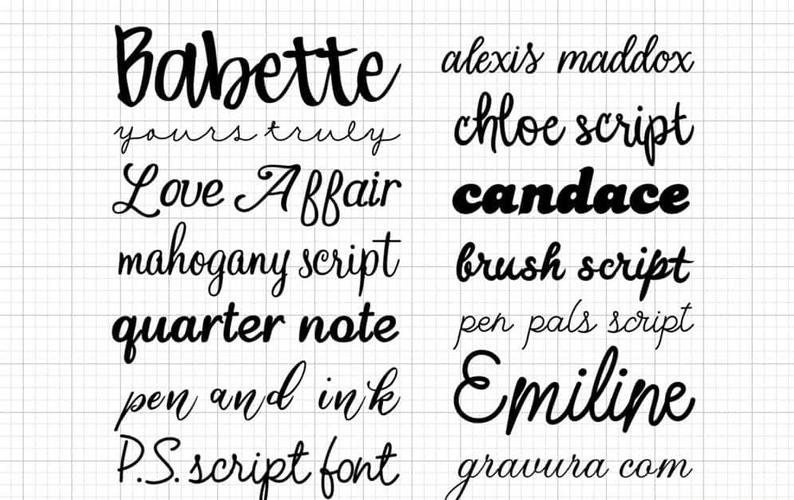 Babette
yours truly
Love Affair
mahogany script
quarter note
pen and ink
P.S. script font
alexis maddox
chloe script
candace
brush script
pen pals script
Emiline
gravura com